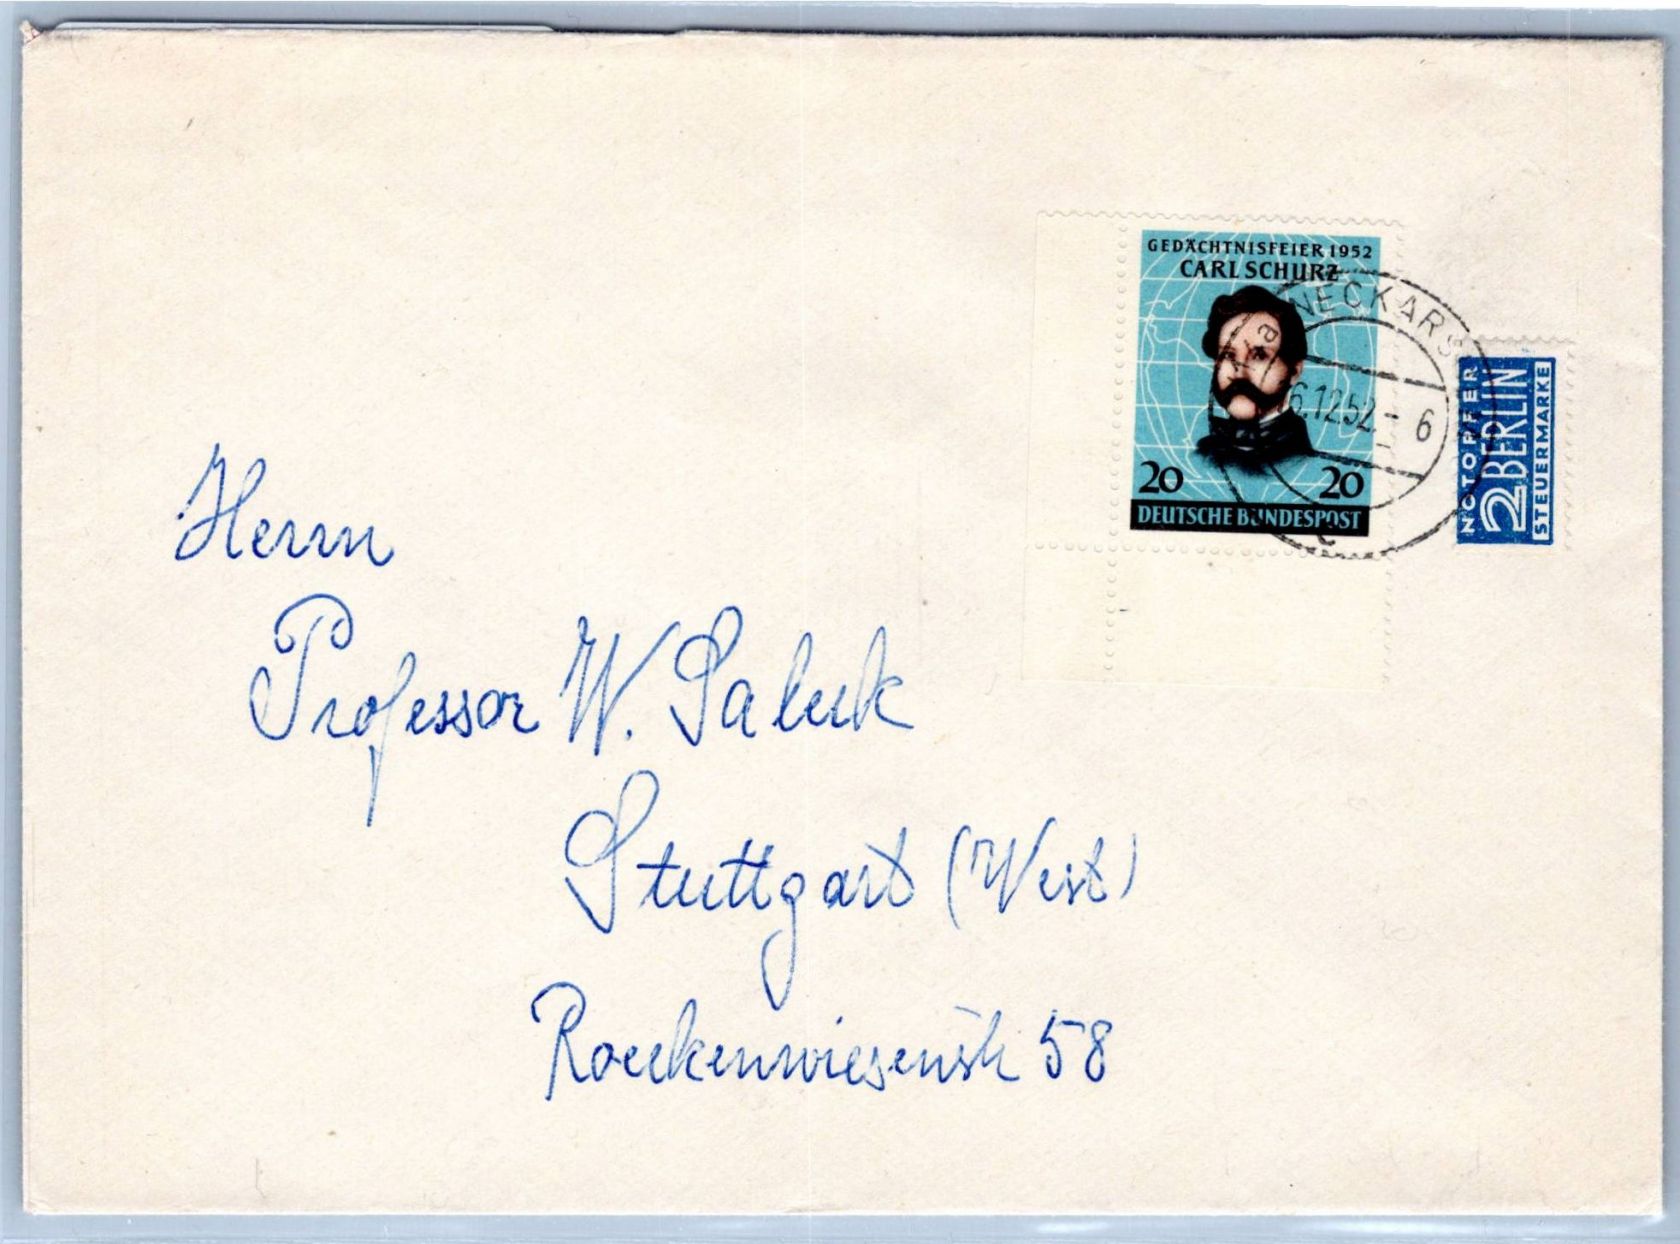 GEDÄCHTNISFEIER 1952
CARL SCHURZ
20 20
DEUTSCHE BUNDESPOST
NECKARS
6.12.52.- 6
NOTOPFER
2 BERLIN
STEUERMARKE
Herrn
Professor W.
Stuttgart (West)
58